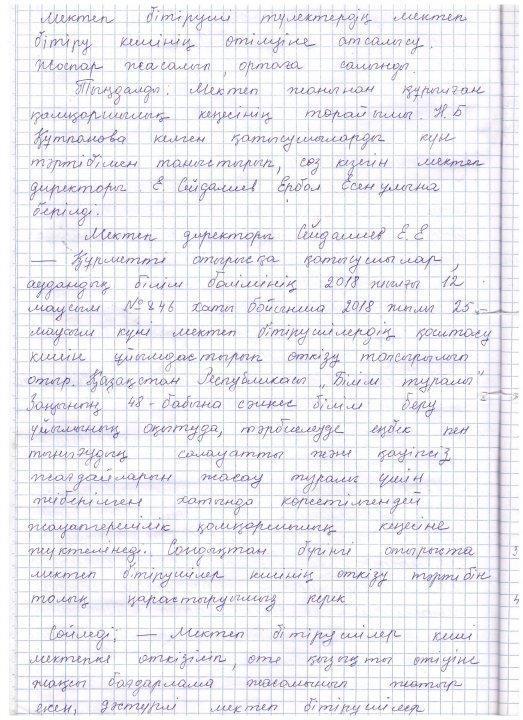 Мектеп бітіруші түлектердің мектеп
бітіру кешінің өтілуіне атсалысу.
Жоспар жасалып, ортаға салынды.
Тыңдалды: Мектеп жанынан құрылған
қамқоршылық кеңесінің төрайымы Н.Б
Құтпанова келген қатысушыларды күн
тәртібімен таныстырып, сөз кезегін мектеп
директоры Е. Сейдалиев Ербол Есенұлына
берілді.
Мектеп директоры Сейдалиев Е.Е
— Құрметті отырысқа қатысушылар,
аудандық білім бөлімінің 2018 жылғы 12
маусым №846 хаты бойынша 2018 жылы 25
маусым күні мектеп бітірушілердің қоштасу
кешін ұйымдастырып өткізу тапсырылып
отыр. Қазақстан Республикасы „Білім туралы"
Заңының 48-бабына сәйкес білім беру
ұйымының оқытуда, тәрбиелеуде еңбек пен
тынығудың салауатты және қауіпсіз
жағдайларын жасау туралы үшін
жіберілген хатында көрсетілгендей
жауапкершілік қамқоршылық кеңесіне
жүктелінеді. Сондықтан бүгінгі отырыста
мектеп бітірушілер кешінің өткізу тәртібін
толық қарастыруымыз керек
Сөйледі: — Мектеп бітірушілер кеші
мектепте өткізіліп, өте қызықты өтуіне
жақсы бағдарлама жасалынып жатыр
екен, дәстүрлі мектеп бітірушілер